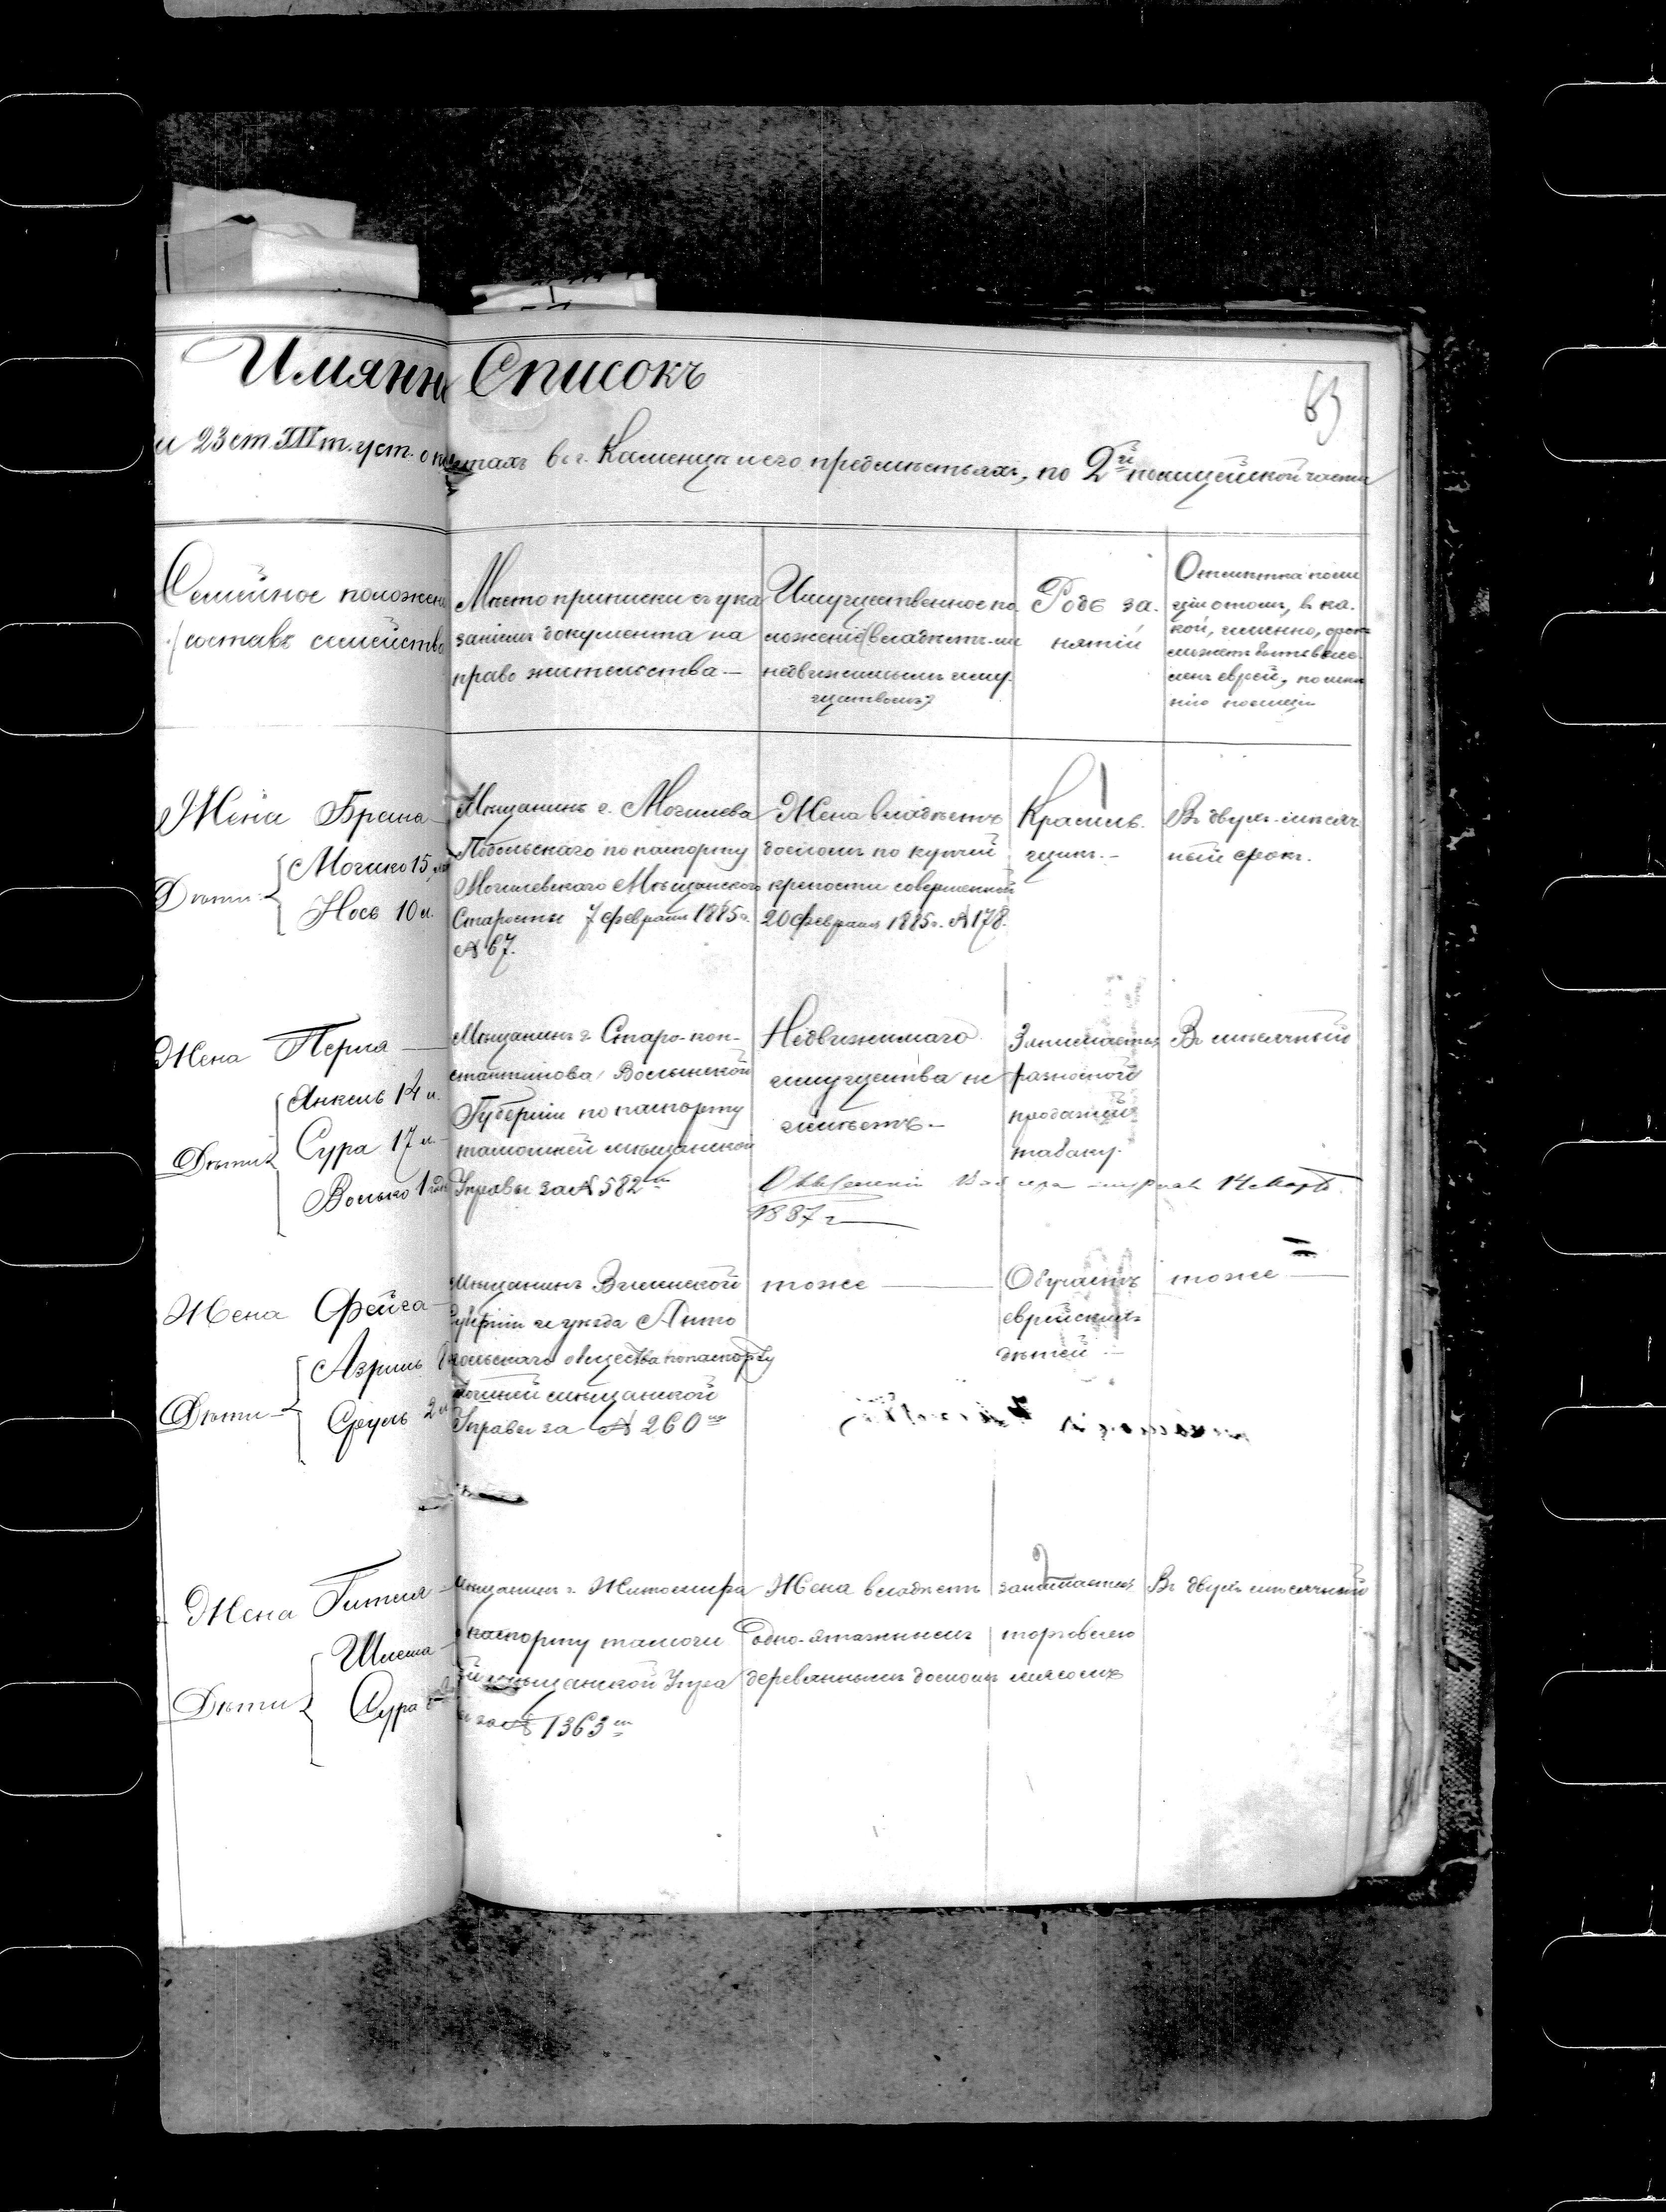 Имянн Списокъ
63
и 23 ст. III т. уст. о п тахъ в г. Каменцѣ и его предмѣстьяхъ, по 2й полицейской части
Семейное положен
(составъ семейства
Мѣсто приписки съ ука
заніемъ документа на
право жительства —
Имущественное по
ложеніе (владѣетъ-ли
недвижимымъ иму-
ществомъ)
Родъ за-
нятій
Отмѣтка поли
ціи о томъ, въ ка-
кой, именно, срокъ
можетъ быть высе-
ленъ еврей, по мнѣ
нію полиціи
Жена Брана
Дѣти
Мошко 15
Іось 10 л.
Мѣщанинъ г. Могилева
Подольскаго по паспорту
Могилевскаго Мѣщанскаго
Старосты 7 февраля 1885 г.
№ 67.
Жена владѣетъ
домомъ по купчей
крепости совершенной
20 февраля 1885 г. № 178.
Красиль-
щикъ.—
Въ двухъ-мѣсяч
ный срокъ.
Жена Перля —
Дѣти
Янкель 14 л.
Сура 17 л.
Волько 1 годъ
Мѣщанинъ г. Старо-кон-
стантинова, Волынской
Губерніи по паспорту
тамошней мѣщанской
Управы за № 582
Недвижимаго
имущества не
имѣетъ —
Занимается
разносной
продажей
табаку.
Въ мѣсячный
14 Марта
1887 г
Жена Фейга —
Дѣти —
Азриль
Сруль 2 л
Мѣщанинъ Виленской
Губерніи и уѣзда Анто
кольскаго общества по паспорту
мѣщанской
Управы за № 260
тоже
Обучаетъ
еврейскихъ
дѣтей —
тоже —
Жена Гитля —
Дѣти
Шлема
Сура
Мѣщанинъ г. Житомира
паспорту тамошн
ей мѣщанской Упра
за № 1363
Жена владѣетъ
одно-этажнымъ
деревяннымъ домомъ
занимается
торговлею
мясомъ
Въ двухъ мѣсячный